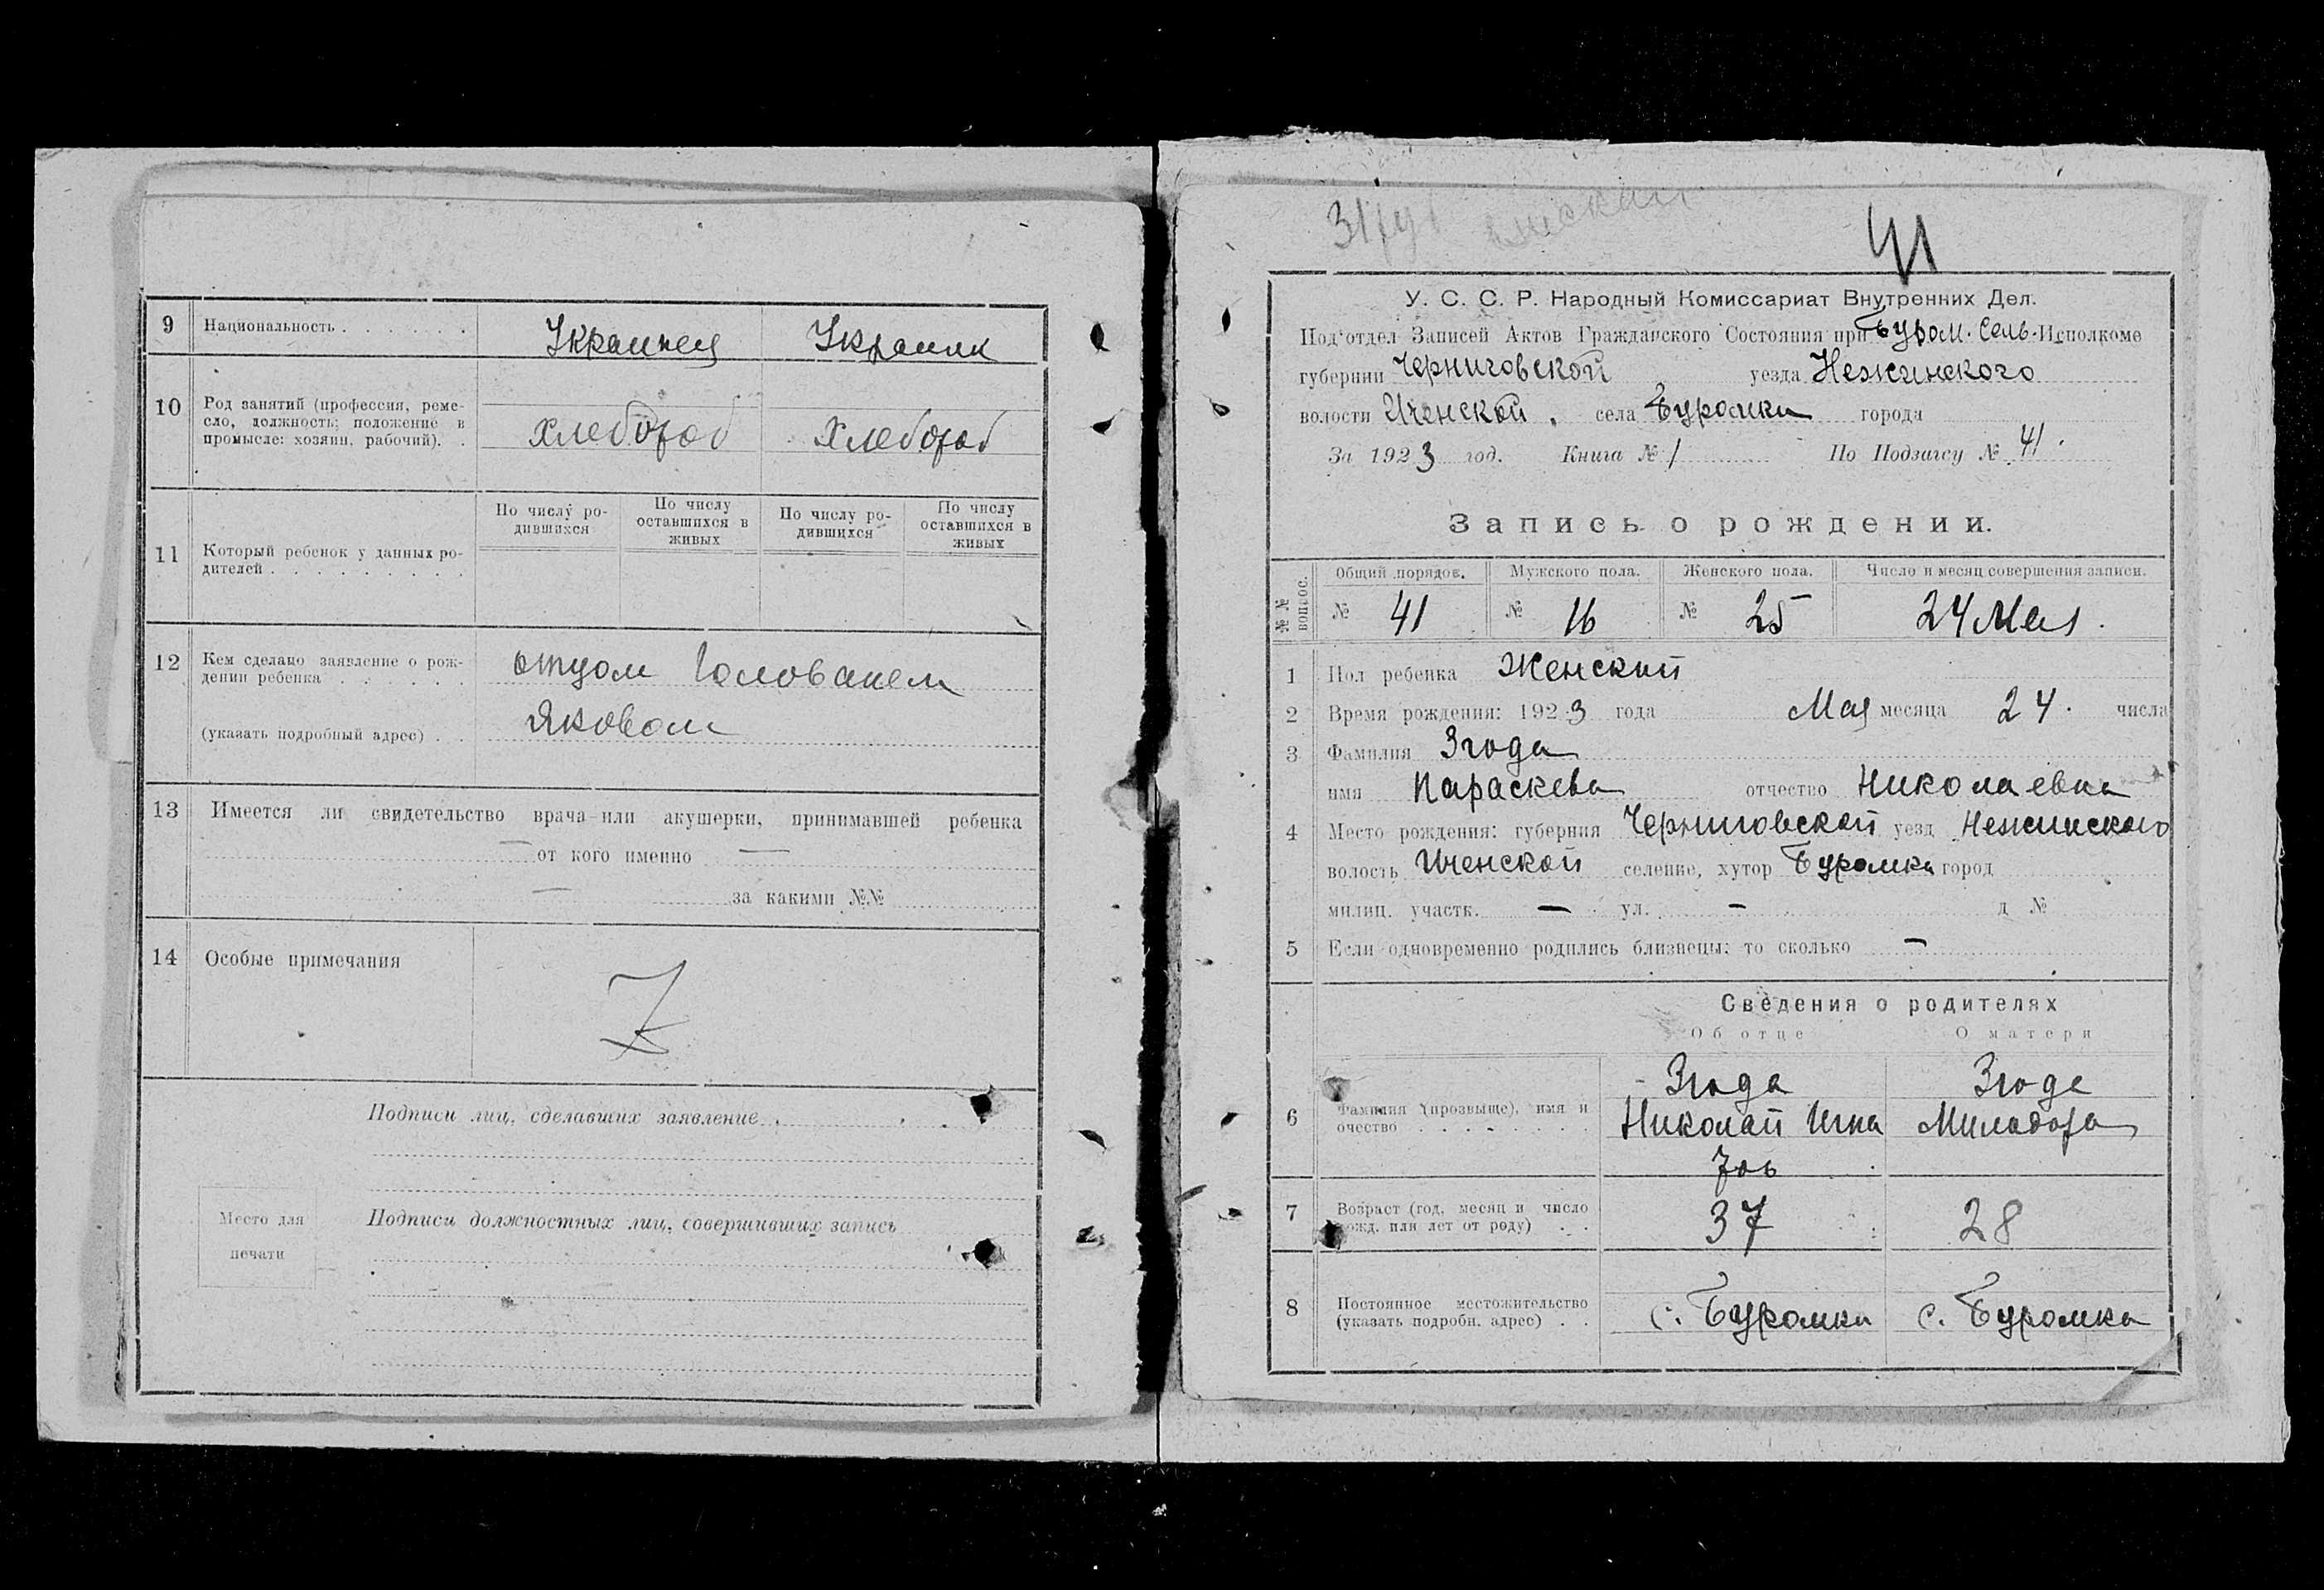 9 Национальность . . . . . . Украинец Украинк
10 Род занятий (профессия, реме-
сло, должность; положение в
промысле: хозяин, рабочий). . хлебороб хлебороб
По числу ро-
дившихся
По числу
оставшихся в
живых
По числу ро-
дившихся
По числу
оставшихся в
живых
11 Который ребенок у данных ро-
дителей . . . . . . . . .
12 Кем сделано заявление о рож-
дении ребенка . . . . . . отцом Голованем
(указать подробный адрес) . . Яковом
13 Имеется ли свидетельство врача или акушерки, принимавшей ребенка
— от кого именно —
— за какими №№
14 Особые примечания
Подписи лиц, сделавших заявление .
Место для
печати
Подписи должностных лиц, совершивших запись
41
У. С. С. Р. Народный Комиссариат Внутренних Дел.
Под'отдел Записей Актов Гражданского Состояния при Буром. Сель-Исполкоме
губернии Черниговской уезда Нежинского
волости Иченской, села Буромки города
За 1923 год. Книга № 1 По Подзагсу № 41.
Запись о рождении.
№ № вопрос.
Общий порядов. Мужского пола. Женского пола. Число и месяц совершения записи.
№ 41 № 16 № 25 24 Мая.
1 Пол ребенка Женский
2 Время рождения: 1923 года Мая месяца 24. числа
3 Фамилия Згода
имя Параскева отчество Николаевна
4 Место рождения: губерния Черниговской уезд Нежинского
волость Иченской селение, хутор Буромка город
милиц. участк. — ул. — д №
5 Если одновременно родились близнецы: то сколько —
Сведения о родителях
Об отце О матери
6 Фамилия (прозвыще), имя и
очество . . . . . . . .
Згода
Николай Игна
тов
Згода
Милодора
7 Возраст (год, месяц и число
рожд. или лет от роду) . . 37 28
8 Постоянное местожительство
(указать подробн. адрес) . . с. Буромка с. Буромка